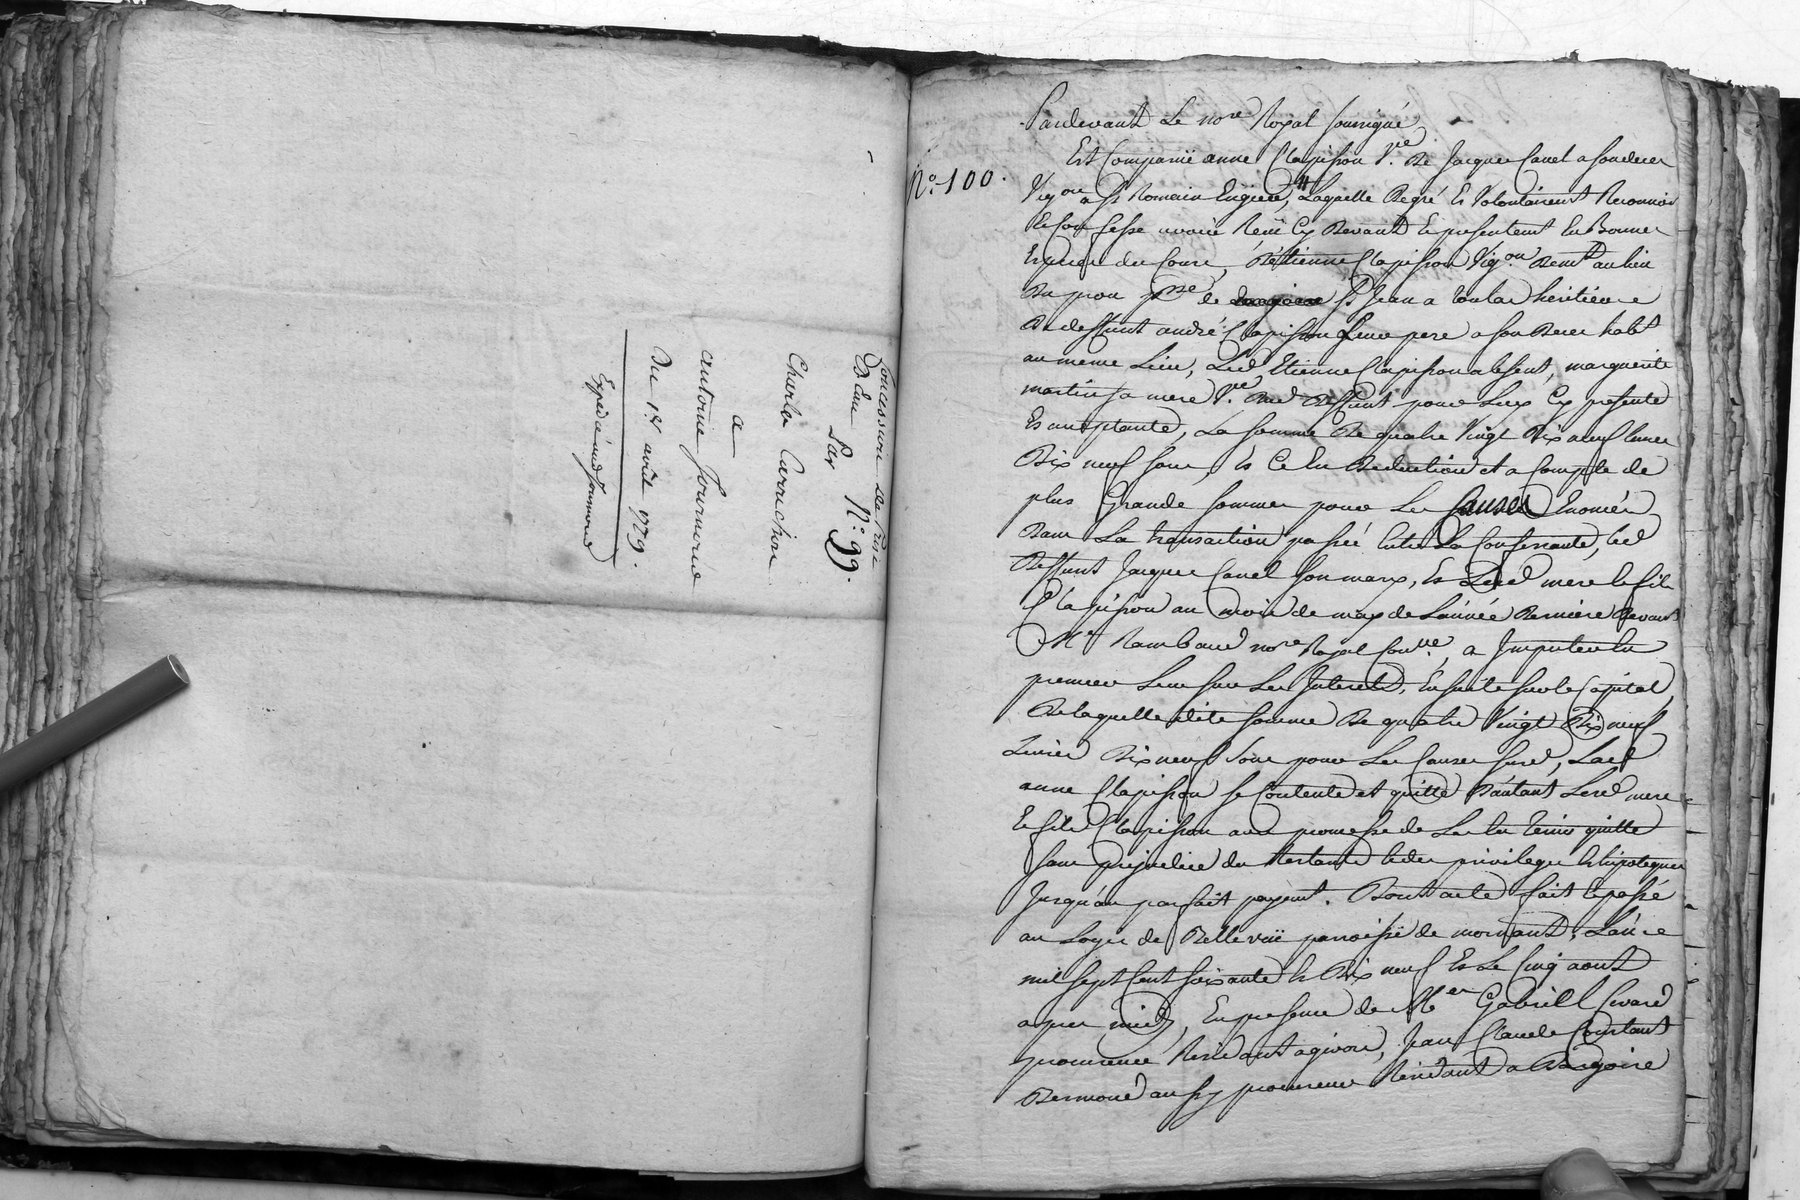 N.° 99.
Charle
a
antoine
Du 1er août 1779.
Expedié
N.° 100.
Pardevant Le nore Royal soussigné
Est Comparüe anne Clapisson Ve. De Jacques Canel a son decer
Vigon a St Romain Engiere, Laquelle De gré Et Volontairemt Reconnois
Et Confesse avoir Reçü Cy Devant Et presentemt En Bonner
Especes du Cours, D'etienne Clapisson Vigon Demt au lieu
Du prou psse de St Jean a toular heritier
De deffunt andré Clapisson Leur pere a son Decer habt
au meme Lieu, Led Etienne Clapisson absent, marguerite
martin sa mere Ve. dud deffunt pour Luy Cy presente
Et acceptante, La somme De quatre Vingt Dix neuf livres
Dix neuf sous, Et Ce En Deduction et a Compte de
plus Grande somme pour Les Causes Enoncées
Dans La transaction passée Entre La Confessante, led
Deffunt Jacques Canel son mary, Et Led mere le fils
Clapisson au mois de may de L'année Derniere Devant
Me Rambaud nore Royal a Imputer En
premier Lieu sur Les Interets, Ensuite sur le Capital,
De laquelle dite somme De quatre Vingt Dix neuf
Livres Dix neuf sous pour Les Causes susd, Lad
anne Clapisson se Contente et quitte D'autant Lesd mere
Et fils Clapisson avec promesse de Les En tenir quitte
sans prejudice du Restant Et des privileges Et hipoteques
Jusqu'au parfait payemt. Dont acte fait et passé
au Loger de Belle vüe paroisse de mornant, L'an
mil sept Cent soixante Et Dix neuf Et Le Cinq aout
apres midy, En presence de Me Gabriel
procureur Residant a givors, Jean Claude Constant
Bermond aussy procureur Residant a Dargoire